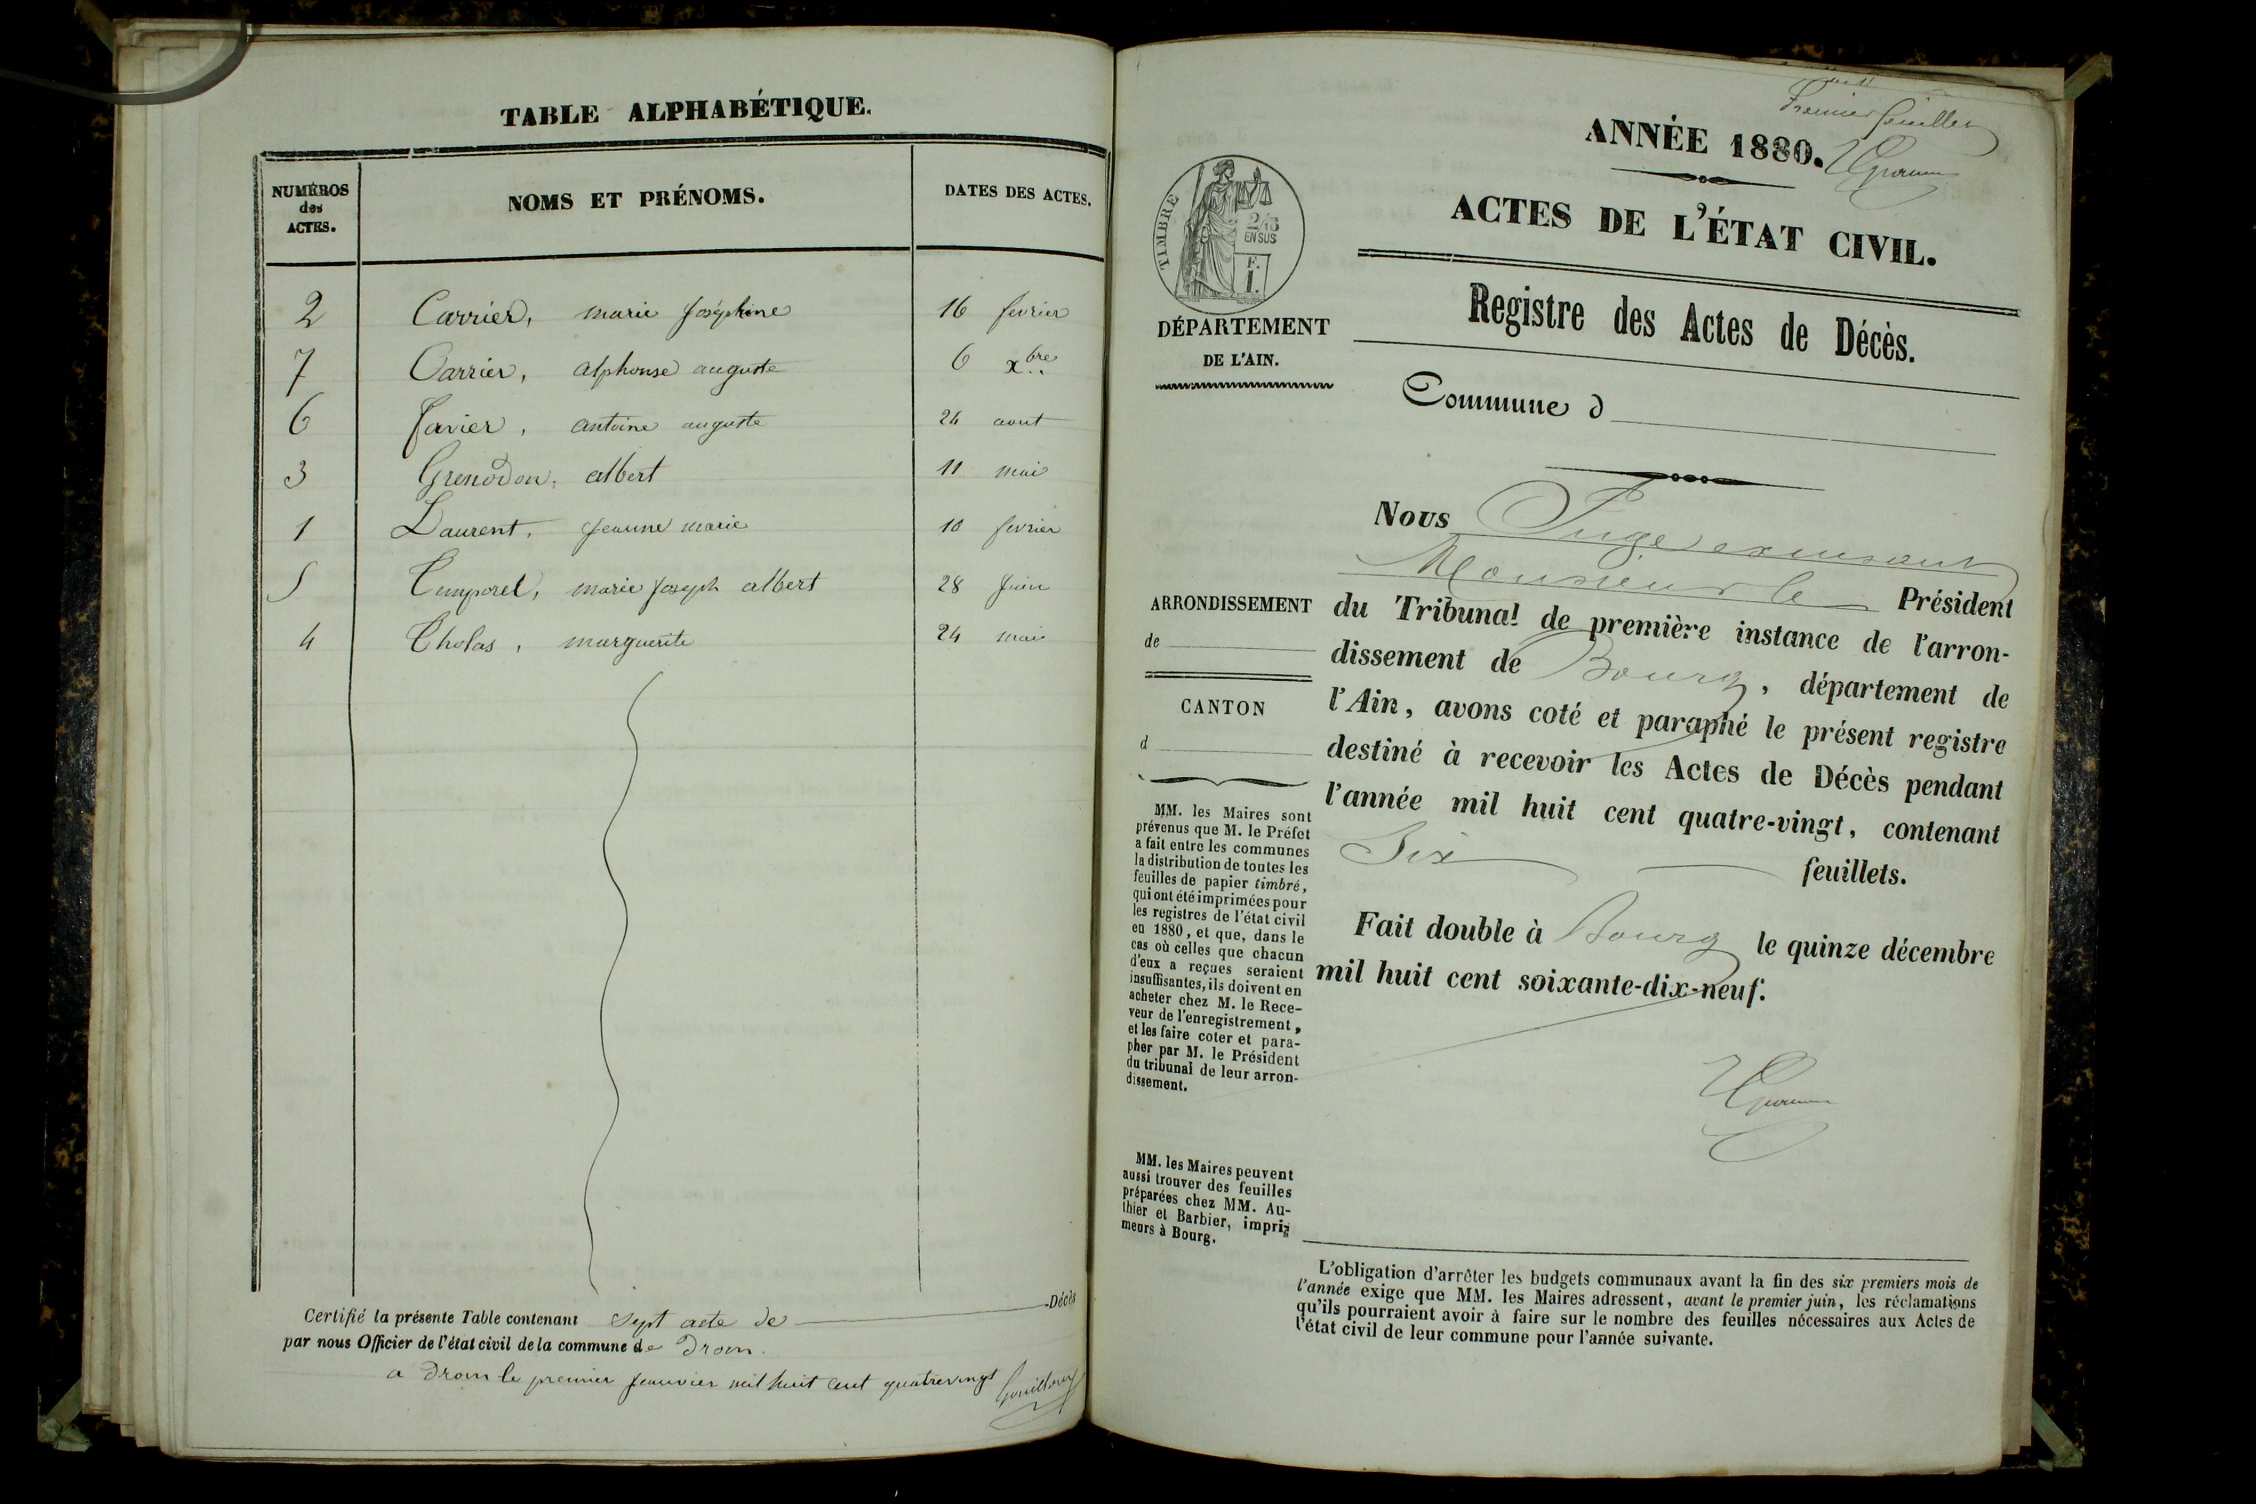 TABLE ALPHABÉTIQUE.
NUMÉROS
des
ACTES.
NOMS ET PRÉNOMS.
DATES DES ACTES.
2 Carrier, marie Joséphine 16 fevrier
7 Carrier, alphonse auguste 6 xbre
6 Favier, antoine auguste 24 aout
3 Grenodon, albert 11 mai
1 Laurent, Jeanne marie 10 fevrier
5 Temporel, marie Joseph albert 28 Juin
4 Tholas, marguerite 24 mai
Certifié la présente Table contenant sept acte de Décès
par nous Officier de l'état civil de la commune de Drom.
a Drom le premier Janvier mil huit cent quatrevingt
Premier feuillet
ANNÉE 1880.
ACTES DE L'ÉTAT CIVIL.
TIMBRE
2/10
EN SUS
F.
1.
DÉPARTEMENT
DE L'AIN.
Registre des Actes de Décès.
Commune d
Nous Juge
Monsieur le Président
du Tribunal de première instance de l'arron-
dissement de Bourg, département de
l'Ain, avons coté et paraphé le présent registre
destiné à recevoir les Actes de Décès pendant
l'année mil huit cent quatre-vingt, contenant
Six feuillets.
Fait double à Bourg le quinze décembre
mil huit cent soixante-dix-neuf.
ARRONDISSEMENT
de
CANTON
d
MM. les Maires sont
prévenus que M. le Préfet
a fait entre les communes
la distribution de toutes les
feuilles de papier timbré,
qui ont été imprimées pour
les registres de l'état civil
en 1880, et que, dans le
cas où celles que chacun
d'eux a reçues seraient
insuffisantes, ils doivent en
acheter chez M. le Rece-
veur de l'enregistrement,
et les faire coter et para-
pher par M. le Président
du tribunal de leur arron-
dissement.
MM. les Maires peuvent
aussi trouver des feuilles
préparées chez MM. Au-
thier et Barbier, impri-
meurs à Bourg.
L'obligation d'arrêter les budgets communaux avant la fin des six premiers mois de
l'année exige que MM. les Maires adressent, avant le premier juin, les réclamations
qu'ils pourraient avoir à faire sur le nombre des feuilles nécessaires aux Actes de
l'état civil de leur commune pour l'année suivante.